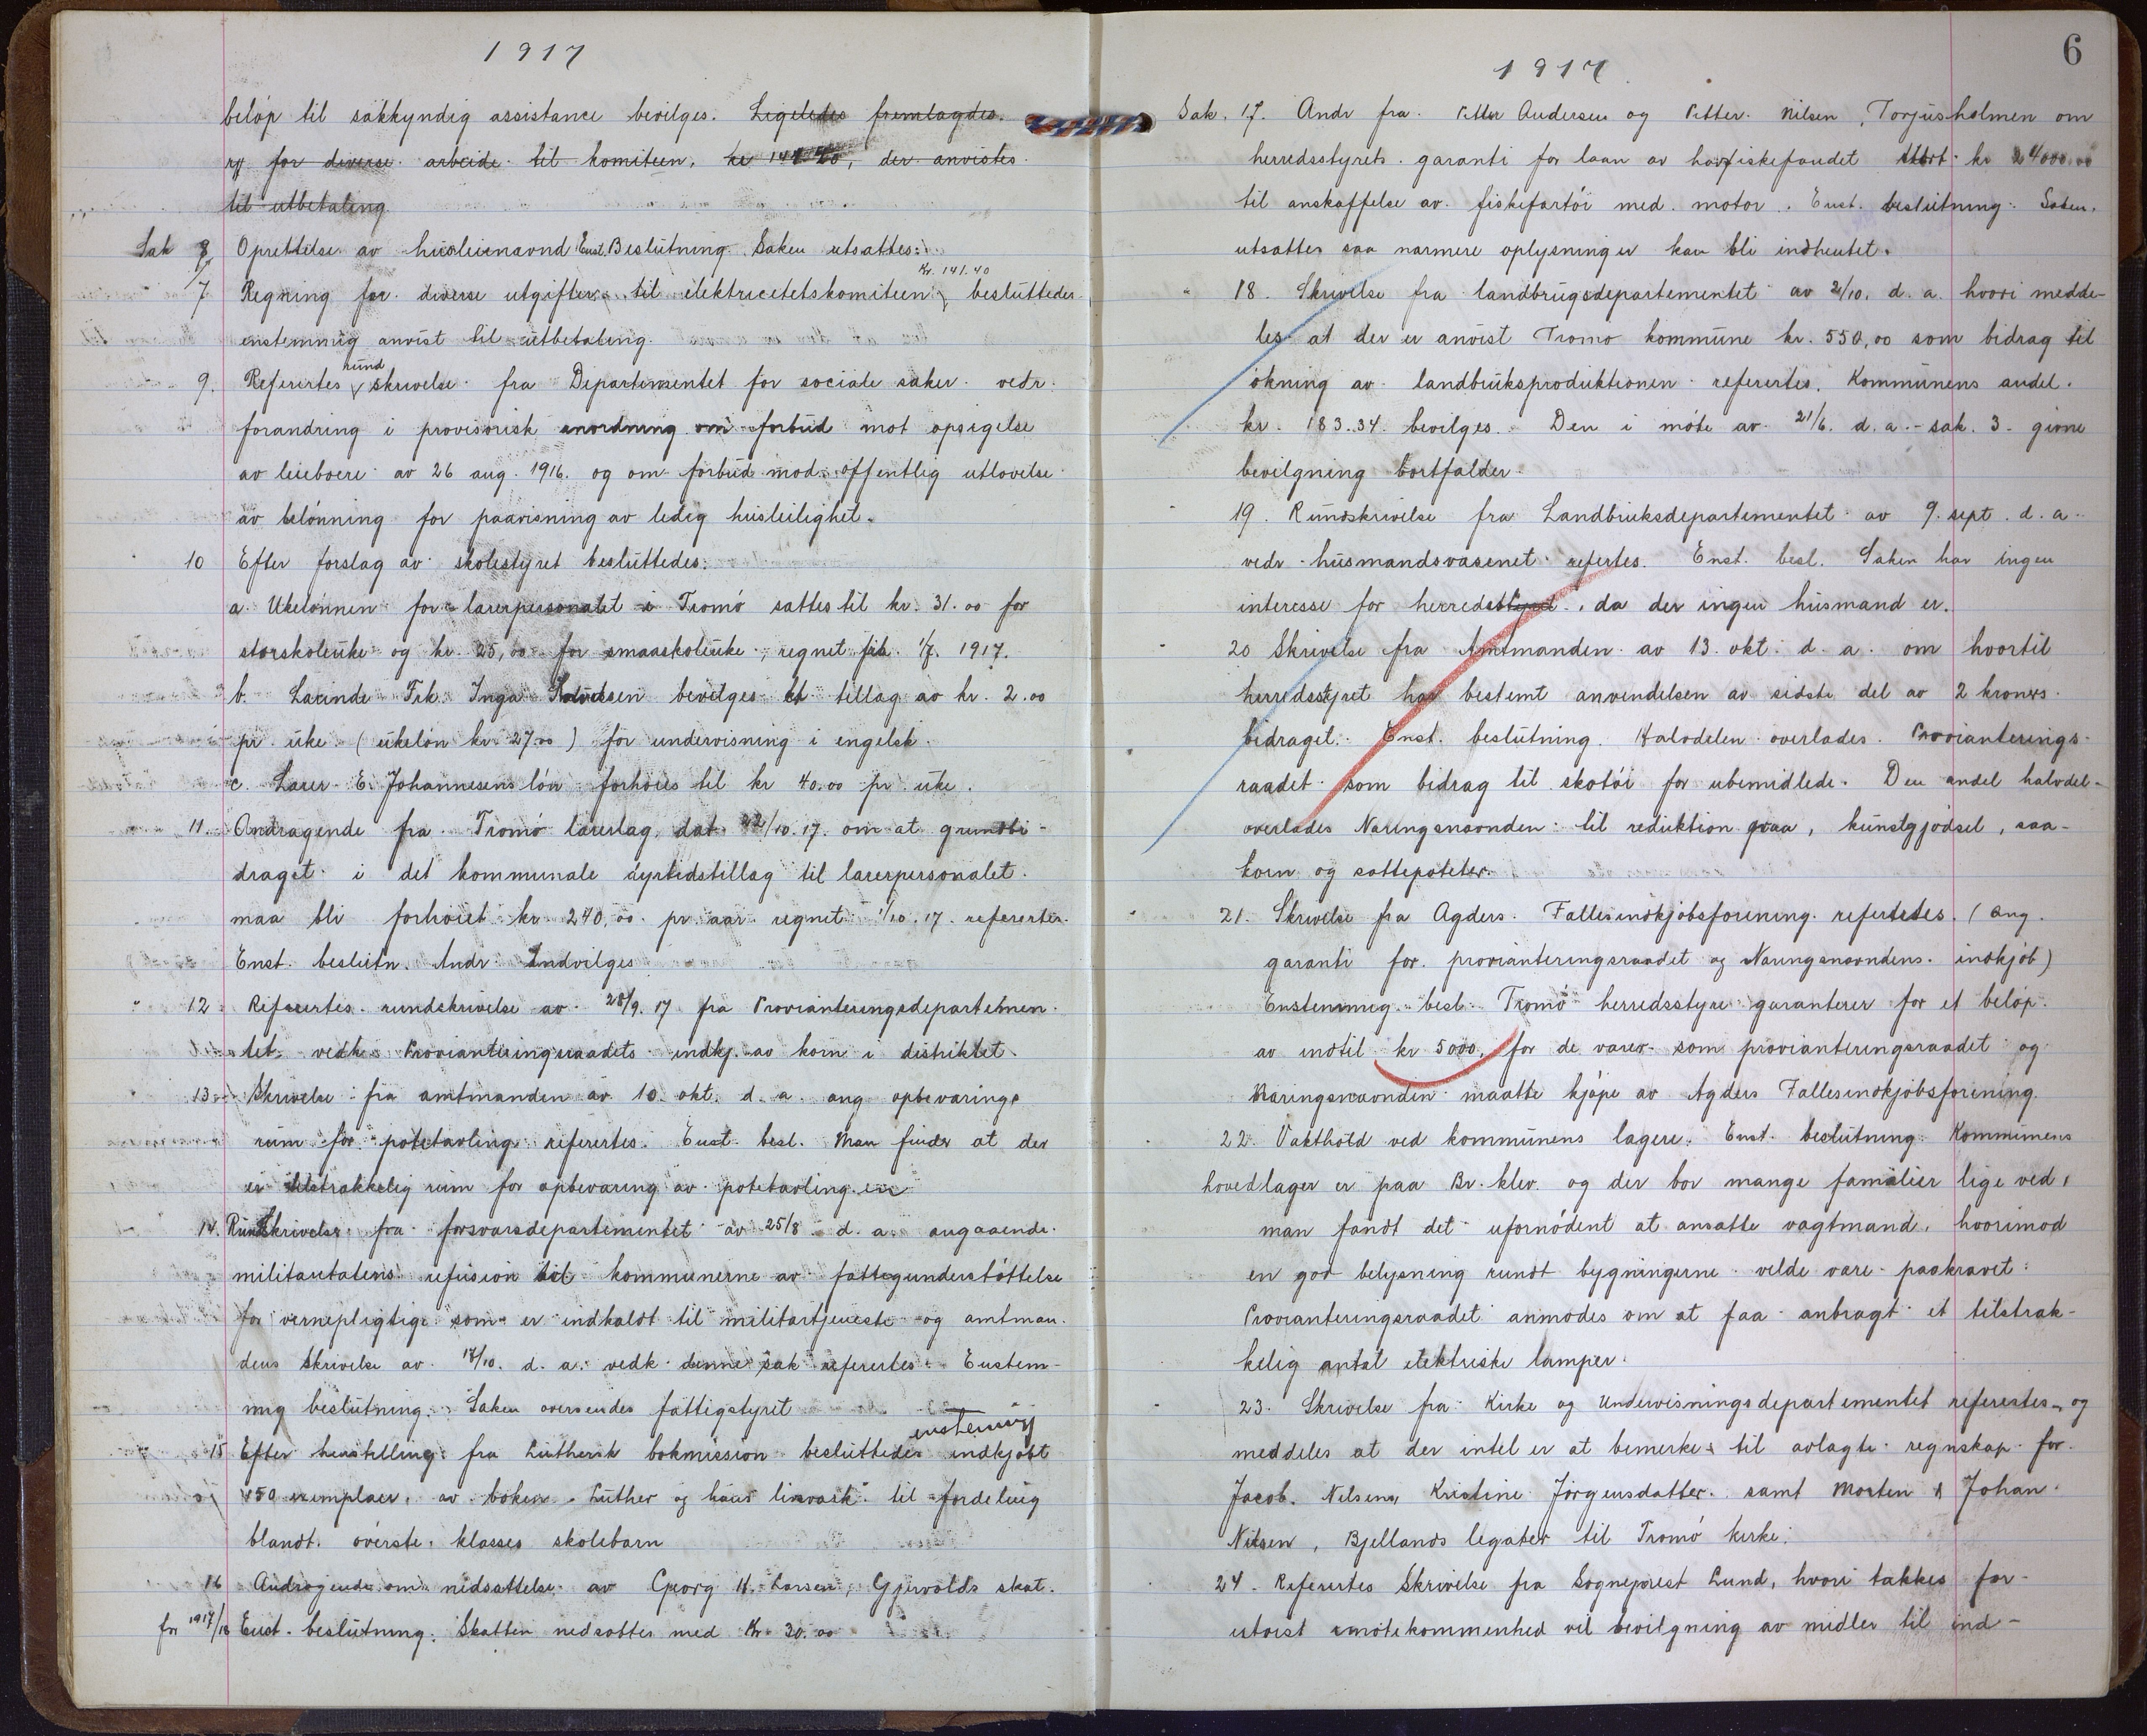 1917
beløp til sakkyndig assistance bevilges. Ligeledes fremlagdes.
rg for diverse arbeide til komiteen, kr 141.40, der anvistes
til utbetaling
Sak 8 Oprettelse av husleienævnd Enst. Beslutning. Saken utsattes:
Kr. 141.40
7 Regning for diverse utgifter til elektricetetskomiteen, besluttedes
enstemmig anvist til utbetaling.
rund
9. Referertes skrivelse fra Departementet for sociale saker vedr.
forandring i provisorisk anordning om forbud mot opsigelse
av leieboere av 26 aug. 1916. og om forbud mod offentlig utlovelse
av belønning for paavisning av ledig husleilighet.
10 Efter forslag av skolestyret besluttedes:
a. Ukelønnen for lærerpersonalet i Tromø sættes til kr. 31.00 for
storskoleuke og kr. 25,00 for smaaskoleuke, regnet fra 1/7. 1917.
b. Lærinde Frk. Inga bevilges et tillæg av kr. 2.00
pr. uke (ukeløn kr. 27.00) for undervisning i engelsk.
c. Lærer E. Johannesens løn forhøies til kr 40.00 pr. uke.
11. Andragende fra Tromø lærerlag, dat. 22/10.17. om at grundbi-
draget i det kommunale dyrtidstillæg til lærerpersonalet
maa bli forhøiet kr. 240,00 pr. aar regnet 1/10.17. referertes.
Enst. beslutn. Andr. Indvilges
12 Referertes rundskrivelse av 28/9.17 fra Provianteringsdepartemen-
tet vedk. Provianteringsraadets indkj. av korn i distriktet.
13 Skrivelse fra amtmanden av 10. okt. d. a. ang opbevarings
rum for potetavling referertes. Enst. besl. Man finder at der
er tilstrækkelig rum for opbevaring av potetavling.
14. Rundskrivelse fra forsvarsdepartementet av 25/8 d. a. angaaende
militæretatens refusion til kommunerne av fattigunderstøttelse
for vernepligtige som er indkaldt til militærtjeneste og amtman-
dens Skrivelse av 17/10. d. a. vedk. denne sak referertes. Enstem-
mig beslutning. Saken oversendes fattigstyret
enstemmig
15 Efter henstilling fra Luthersk bokmission besluttedes indkjøbt
150 exemplaer. av boken Luther og hans livsværk til fordeling
blandt øverste klasses skolebarn
16 Andragende om nedsættelse av Georg K. Larsen, Gjervolds skat.
for 1917/18 Enst. beslutning. Skatten nedsættes med Kr. 30.00
6
1917.
Sak. 17. Andr fra Petter Andersen og Petter Nilsen, Torjusholmen om
herredsstyrets garanti for laan av havfiskefondet stort kr 24000.00
til anskaffelse av fiskefartøi med motor. Enst. beslutning. Saken
utsættes saa nærmere oplysninger kan bli indhentet.
18. Skrivelse fra landbrugsdepartementet av 2/10. d. a. hvori medde-
les at der er anvist Tromø kommune kr. 550,00 som bidrag til
økning av landbruksproduktionen referertes. Kommunens andel
kr. 183.34 bevilges. Den i møte av 21/6. d. a. - sak. 3 - givne
bevilgning bortfalder.
19. Rundskrivelse fra Landbruksdepartementet av 9. sept. d. a.
vedr. husmandsvæsenet refertes. Enst. besl. Saken har ingen
interesse for herredsstyret, da der ingen husmand er.
20 Skrivelse fra Amtmanden av 13. okt. d. a. om hvortil
herredsstyret har bestemt anvendelsen av sidste del av 2 kroners
bidraget. Enst. beslutning. Halvdelen overlades Provianterings-
raadet som bidrag til skotøi for ubemidlede. Den andel halvdel
overlades Næringsnævnden til reduktion paa, kunstgjødsel, saa-
korn og sættepoteter.
21. Skrivelse fra Agders Fællesindkjøbsforening refertetes. (ang.
garanti for provianteringsraadet og Næringsnævndens indkjøb)
Enstemmig besl. Tromø herredsstyre garanterer for et beløp
av indtil kr 5000, for de varer som provianteringsraadet og
Næringsnævnden maatte kjøpe av Agders Fællesindkjøbsforening.
22. Vakthold ved kommunens lagere. Enst. beslutning. Kommunens
hovedlager er paa Br.klev. og der bor mange familier lige ved,
man fandt det ufornødent at ansætte vagtmand, hvorimod
en god belysning rundt bygningerne vilde være paakrævet.
Provianteringsraadet anmodes om at faa anbragt et tilstræk-
kelig antal elektriske lamper.
23. Skrivelse fra Kirke og Undervisningsdepartementet referertes, og
meddeles at der intet er at bemerke til avlagte regnskap for
Jacob Nilsens, Kristine Jørgensdatter samt Morten & Johan
Nilsen, Bjellands legater til Tromø kirke.
24. Referertes Skrivelse fra Sogneprest Lund, hvori takkes for
utvist imøtekommenhed ved bevilgning av midler til ind-